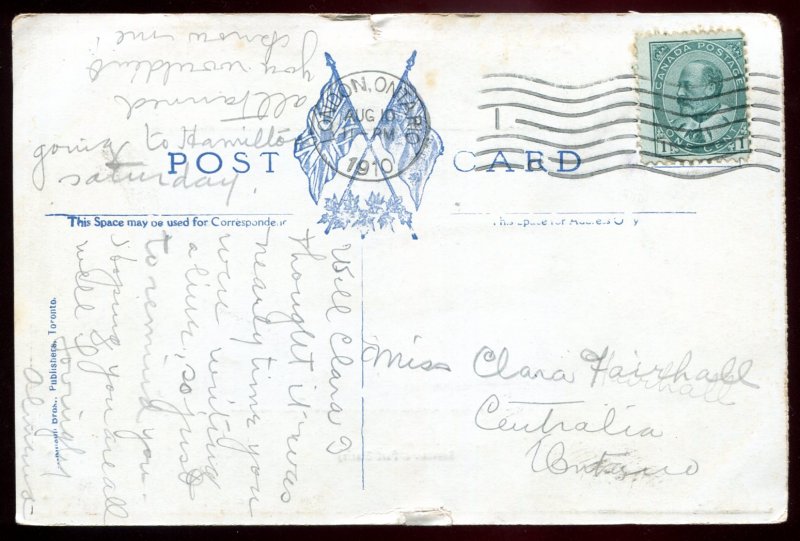 Will Clara I
thought it was
nearly time you
were writing
a line, so just
to remind you.
Hoping you are all
well
Almina
going to Hamilton
Saturday.
all tanned
you wouldent
know me!
POST CARD
LONDON, ONTARIO
AUG 10
PM
1910
CANADA POSTAGE
ONE CENT
1 1
This Space may be used for Corresponden
This Space for Address Only
Publishers, Toronto.
Miss Clara Fairhall
Centralia
Ontario